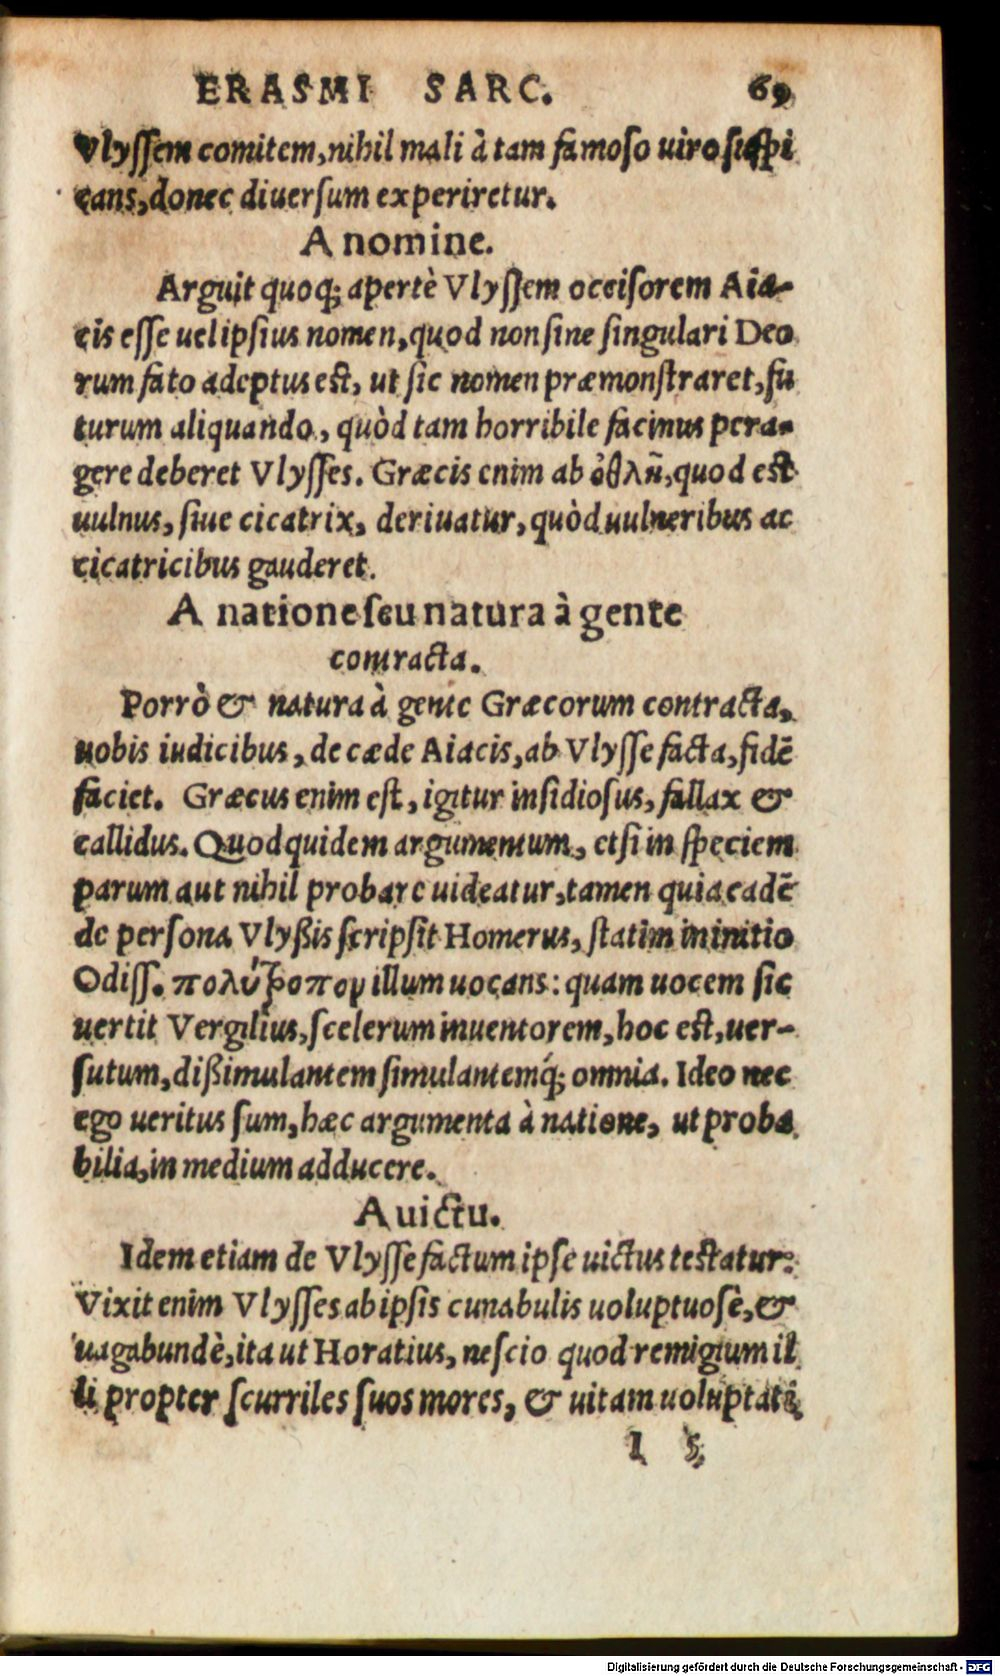 ERASMI SARC. 69
Vlyssem comitem, nihil mali à tam famoso uiro suspi
cans, donec diuersum experiretur.
A nomine.
Arguit quoq; apertè Vlyssem occisorem Aia-
cis esse uel ipsius nomen, quod non sine singulari Deo
rum fato adeptus est, ut sic nomen præmonstraret, fu
turum aliquando, quòd tam horribile facinus pera-
gere deberet Vlysses. Græcis enim ab ὀθλῆ, quod est
uulnus, siue cicatrix, deriuatur, quòd uulneribus ac
cicatricibus gauderet.
A natione seu natura à gente
contracta.
Porrò & natura à gente Græcorum contracta,
uobis iudicibus, de cæde Aiacis, ab Vlysse facta, fidē
faciet. Græcus enim est, igitur insidiosus, fallax &
callidus. Quod quidem argumentum, etsi in speciem
parum aut nihil probare uideatur, tamen quia eadē
de persona Vlyßis scripsit Homerus, statim in initio
Odiss. πολύτροπον illum uocans: quam uocem sic
uertit Vergilius, scelerum inuentorem, hoc est, uer-
sutum, dißimulantem simulantemq́; omnia. Ideo nec
ego ueritus sum, hæc argumenta à natione, ut proba
bilia, in medium adducere.
A uictu.
Idem etiam de Vlysse factum ipse uictus testatur:
Vixit enim Vlysses ab ipsis cunabulis uoluptuosè, &
uagabundè, ita ut Horatius, nescio quod remigium il
li propter scurriles suos mores, & uitam uoluptati
I 5
Digitalisierung gefördert durch die Deutsche Forschungsgemeinschaft - DFG